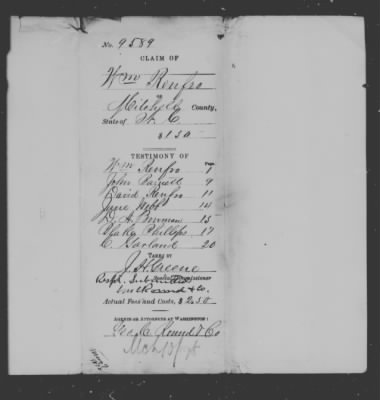 No. 9589
CLAIM OF
Wm Renfro
Mitchell County,
State of N. C
$150
TESTIMONY OF
Page.
Wm Renfro 1
John 9
David Renfro 11
Jane Webb 14
D. A. Bowman 15
Phillips 17
C. Garland 20
TAKEN BY
J. H. Greene
Special Commissioner
Actual Fees and Costs, $2.50
AGENTS OR ATTORNEYS AT WASHINGTON:
Geo. C. Round & Co
Mch 13/78